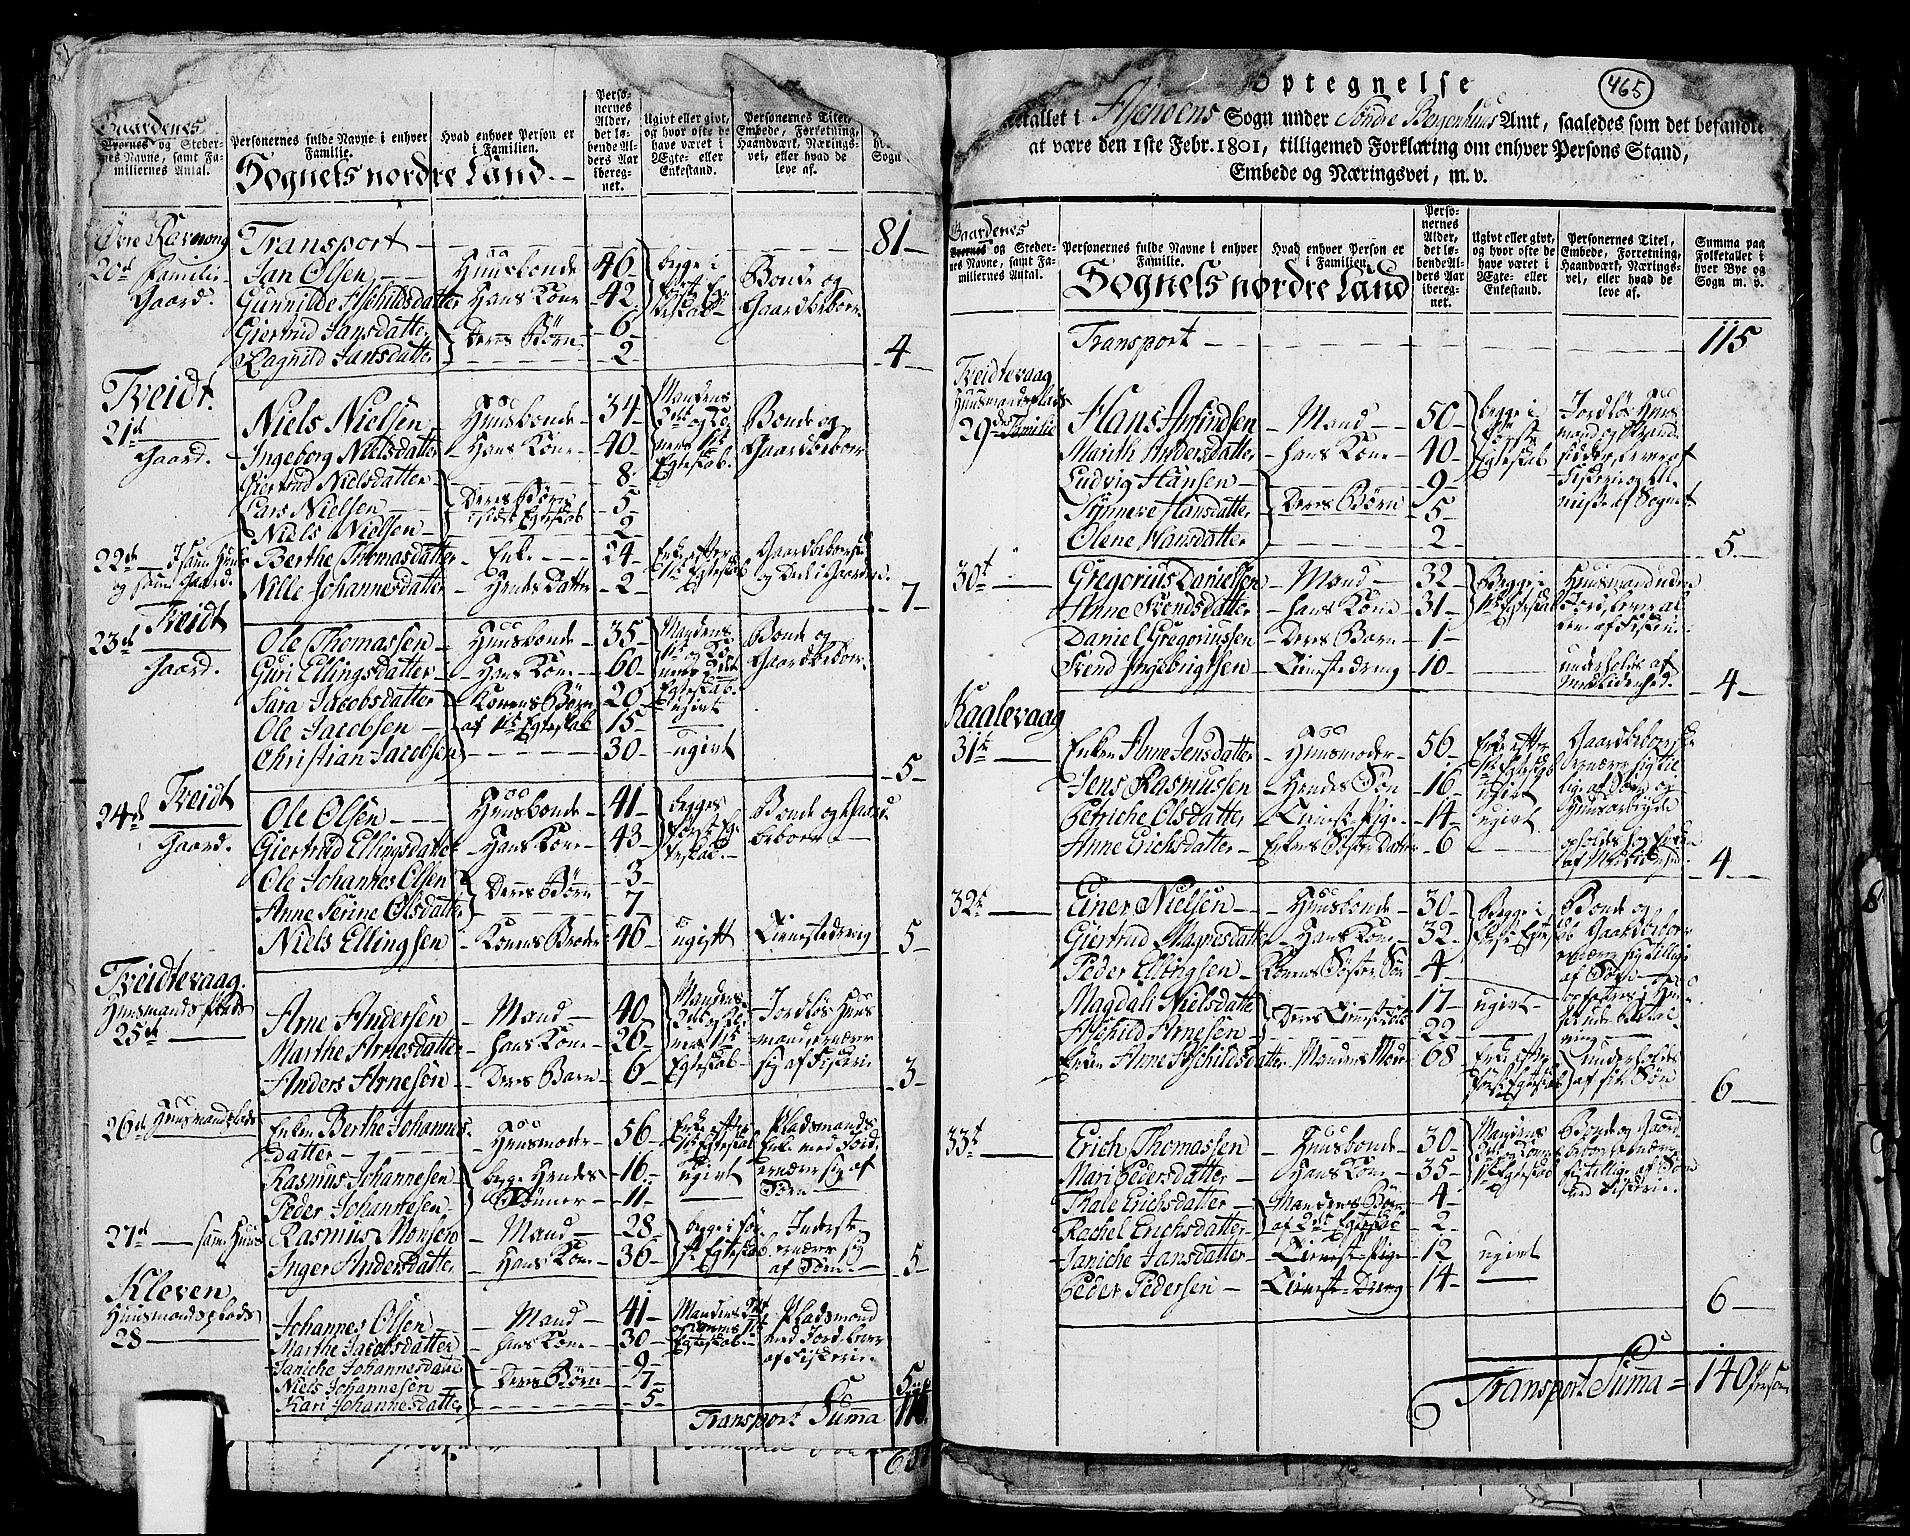 Gaardenes
Byernes og Steder-
nes Navne, samt Fa-
miliernes Antal.
Personernes fulde Navne i enhver
Familie.
Hvad enhver Person er
i Familien.
Perso-
nernes
Alder,
det lø-
bende Al-
ders Aar
ibereg-
net.
Ugivt eller givt,
og hvor ofte de
have været i
Ægte- eller
Enkestand.
Personernes Titel,
Embede, Forretning,
Haandværk, Nærings-
vei, eller hvad de
leve af.
Sogn
Sognets nordre Land.
Øvre Ravnong Transport 81
20de Familie Jan Olsen Huusbonde 46 begge i Bonde og
Gaard. Gunnilde Aschildsdatter Hans Kone 42 Gaardbeboer
Giertrud Jansdatter Deres Børn 6
Ragnild Jansdatter 2 4
Tveidt.
21de Niels Nielsen Huusbonde 34 Mandens Bonde og
Gaard. Ingeborg Nielsdatter Hans Kone 40 Gaardbeboer
Giertrud Nielsdatter 8
Lars Nielsen Deres Børn 5
Niels Nielsen 2
22de Berthe Thomasdatter Enke 24 Enke efter
og samme Gaard. Nille Johannesdatter Hendes Datter 2 7
Tveidt
23de Ole Thomassen Huusbonde 35 Mandens Bonde og
Gaard. Guri Ellingsdatter Hans Kone 60 Gaardbeboer
Sara Jacobsdatter Konens Børn 20 ugivt
Ole Jacobsen af 1ste Egteskab 15
Christian Jacobsen 30 ugivt 5
Tveidt
24de Ole Olsen Huusbonde 41 begges Bonde og Gaard-
Gaard. Giertrud Ellingsdatter Hans Kone 43 beboer
Ole Johannes Olsen Deres Børn 3
Anne Serine Olsdatter 7
Niels Ellingsen Konens Broder 46 ugift Tienistedreng 5
Tveidtevaag.
Huusmandsplads
25de Arne Andersen Mand 40 Mandens Jordløs Huus
Marthe Arnesdatter Hans Kone 26 mand ernærer
Anders Arnesøn Deres Barn 6 Egteskab sig af Fiskerie 3
26de Huusmandsplads Enken Berthe Johannes- Huusmoder 56 Enke efter Pladsmands
datter 1ste Egteskab Enke med Jord,
Rasmus Johannesen begge Hendes 16 ugivt ernærer sig af
Peder Johannesen Sønner 11
27de samme Huus Rasmus Monsen Mand 28 begge i før- Inderste
Inger Andersdatter Hans Kone 36 ste Egteskab ernærer sig 5
Kleven
Huusmandsplads
28 Johannes Olsen Mand 41 Mandens 2det Pladsmand
Marthe Jacobsdatter Hans Kone 30 Egteskab med Jord, lever
Janiche Johannesdatter 9 af Fiskerie
Niels Johannesen Deres Børn 7
Kari Johannesdatter 5 5
Transport Summa
465
Optegnelse
Fjenoens Sogn under Søndre Bergenhuus Amt, saaledes som det befandtes
at være den 1ste Febr. 1801, tilligemed Forklaring om enhver Persons Stand,
Embede og Næringsvei, m. v.
Gaardenes
Byernes og Steder-
nes Navne, samt Fa-
miliernes Antal.
Personernes fulde Navne i enhver
Familie.
Hvad enhver Person er
i Familien.
Perso-
nernes
Alder,
det lø-
bende Al-
ders Aar
ibereg-
net.
Ugivt eller givt,
og hvor ofte de
have været i
Ægte- eller
Enkestand.
Personernes Titel,
Embede, Forretning,
Haandværk, Nærings-
vei, eller hvad de
leve af.
Summa paa
Folketallet i
hver Bye og
Sogn m. v.
Sognets nordre Land
Transport 115
Tveidtevaag
Huusmandsplads
29de Familie Hans Mand 50 begge i Jordløs Huus
Marith Andersdatter Hans Kone 40 første mand og Strand-
Ludvig Hansen 9 Egteskab sidder, lever af
Synneve Hansdatter Deres Børn 5 Fiskerie og Al-
Olene Hansdatter 2 misse af Sognet 5
30te Gregorius Danielssen Mand 32 Begge i Huusmand uden
Anne Svendsdatter Hans Kone 31 1ste Egteskab Jord, lever al-
Daniel Gregoriussen Deres Barn 1 ene af Fiskerie
Svend Ingebrigtsen Tienistedreng 10 underholdes af
Medlidenhed 4
Kaalevaag
31te Enken Anne Jensdatter Huusmoder 56 Enke efter
Jens Rasmussen Hendes Søn 16 ugivt
Petriche Olsdatter Tieneste Pige 14 ugivt
Anne Erichsdatter Enkens Søster Datter 6 4
32te Einer Nielsen Huusbonde 30 Begge i Bonde og
Giertrud Magnesdatter Hans Kone 32 Gaardbeboer
Peder Ellingsen Konens Søster Søn 4
Magdali Nielsdatter Deres Tienestefolk 17 ugivt
Aschild Arnesøn 22
Enken Anne Aschildsdatter Mandens Moder 68 Enke efter underholdes
af sin Søn 6
33te Erich Thomassen Huusbonde 30 Mandens Bonde og Gaard-
Mari Pedersdatter Hans Kone 35
Thale Erichsdatter Mandens Børn 4
Rachel Erichsdatter af 2det Egteskab 2
Janiche Jansdatter Tieneste Pige 12 ugivt
Peder Pedersen Tieneste Dreng 14 6
Transport Suma = 140